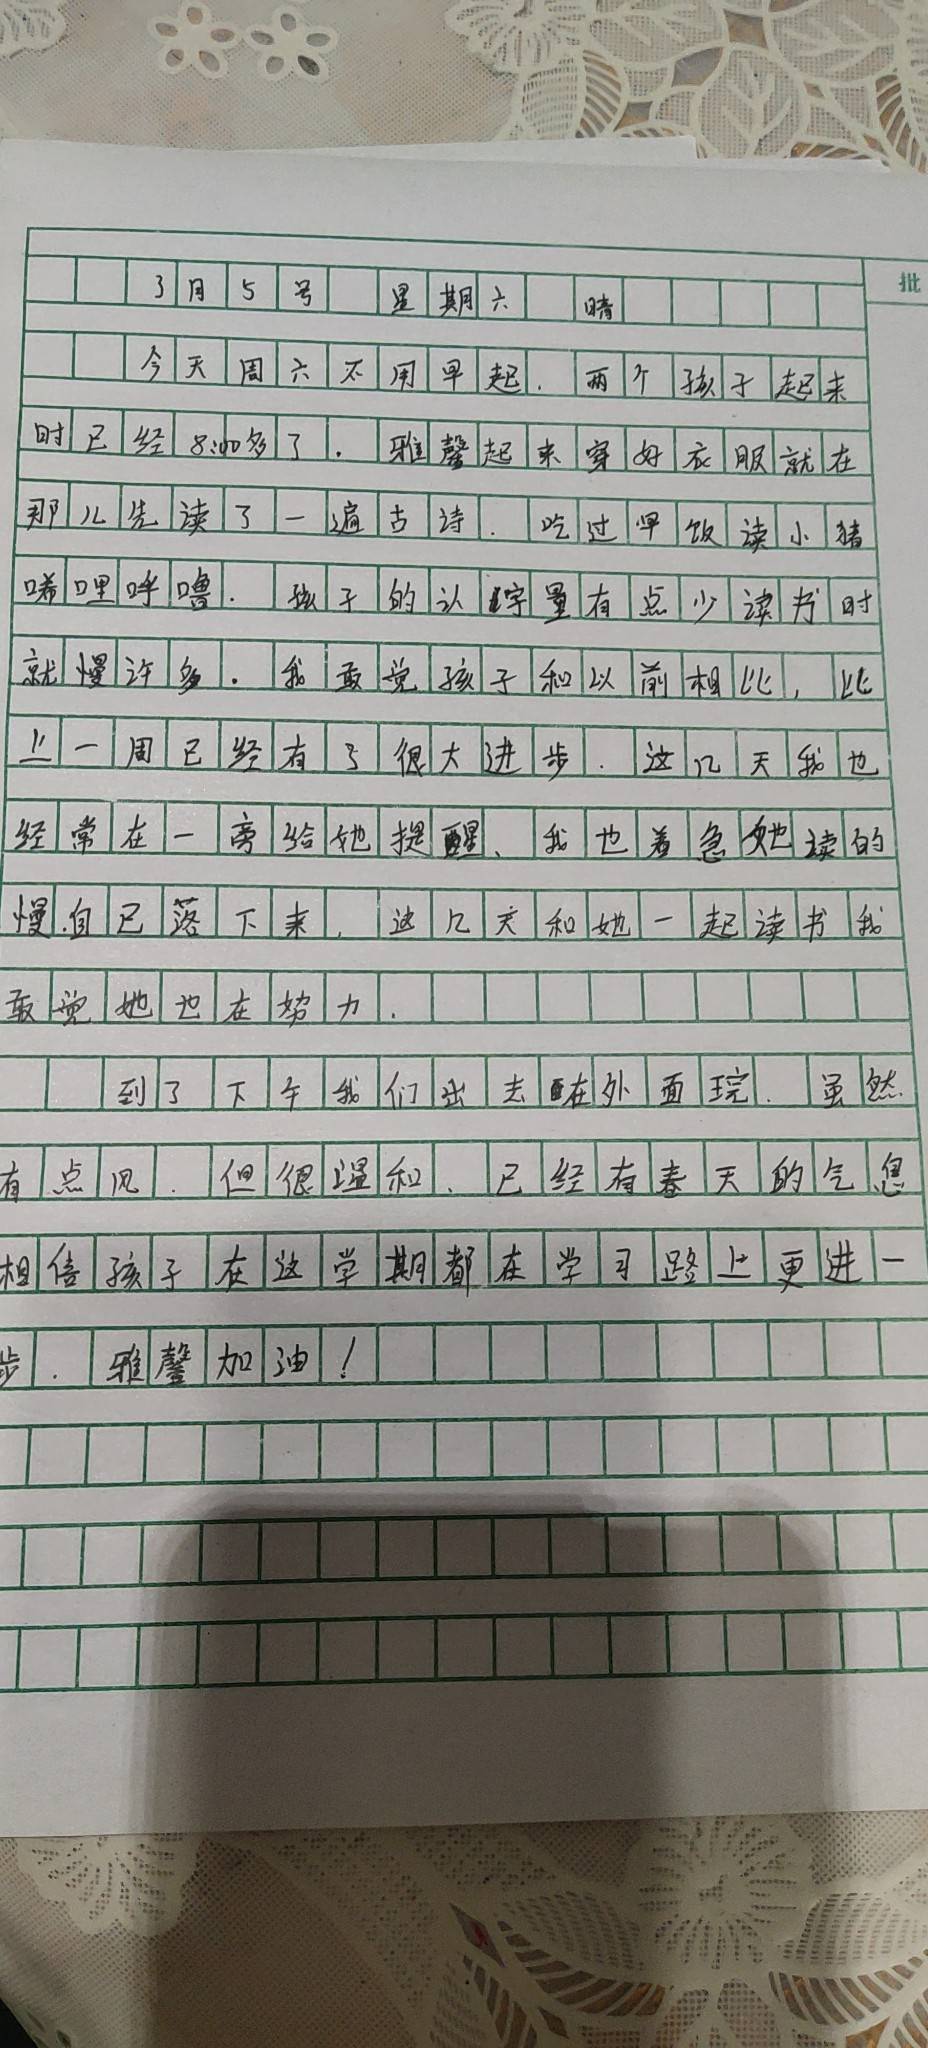 批
3月5号 星期六 晴
今天周六不用早起.两个孩子起来
时已经8:00多了.雅馨起来穿好衣服就在
那儿先读了一遍古诗.吃过早饭读小猪
唏哩呼噜.孩子的认字量有点少读书时
就慢许多.我敢觉孩子和以前相比,比
上一周已经有了很大进步.这几天我也
经常在一旁给她提醒、我也着急她读的
慢.自已落下来,这几天和她一起读书我
敢觉她也在努力.
到了下午我们出去在外面琓.虽然
有点风.但很温和、已经有春天的气息
相信孩子在这学期都在学习路上更进一
步.雅馨加油!